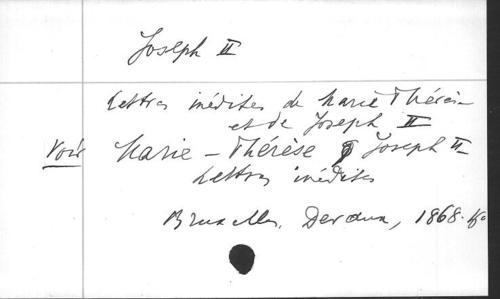 Joseph II
Lettres inédites de Marie Thérèse
et de Joseph II
Voir Marie - Thérèse & Joseph II
Lettres inédites
Bruxelles, Devaux, 1868.